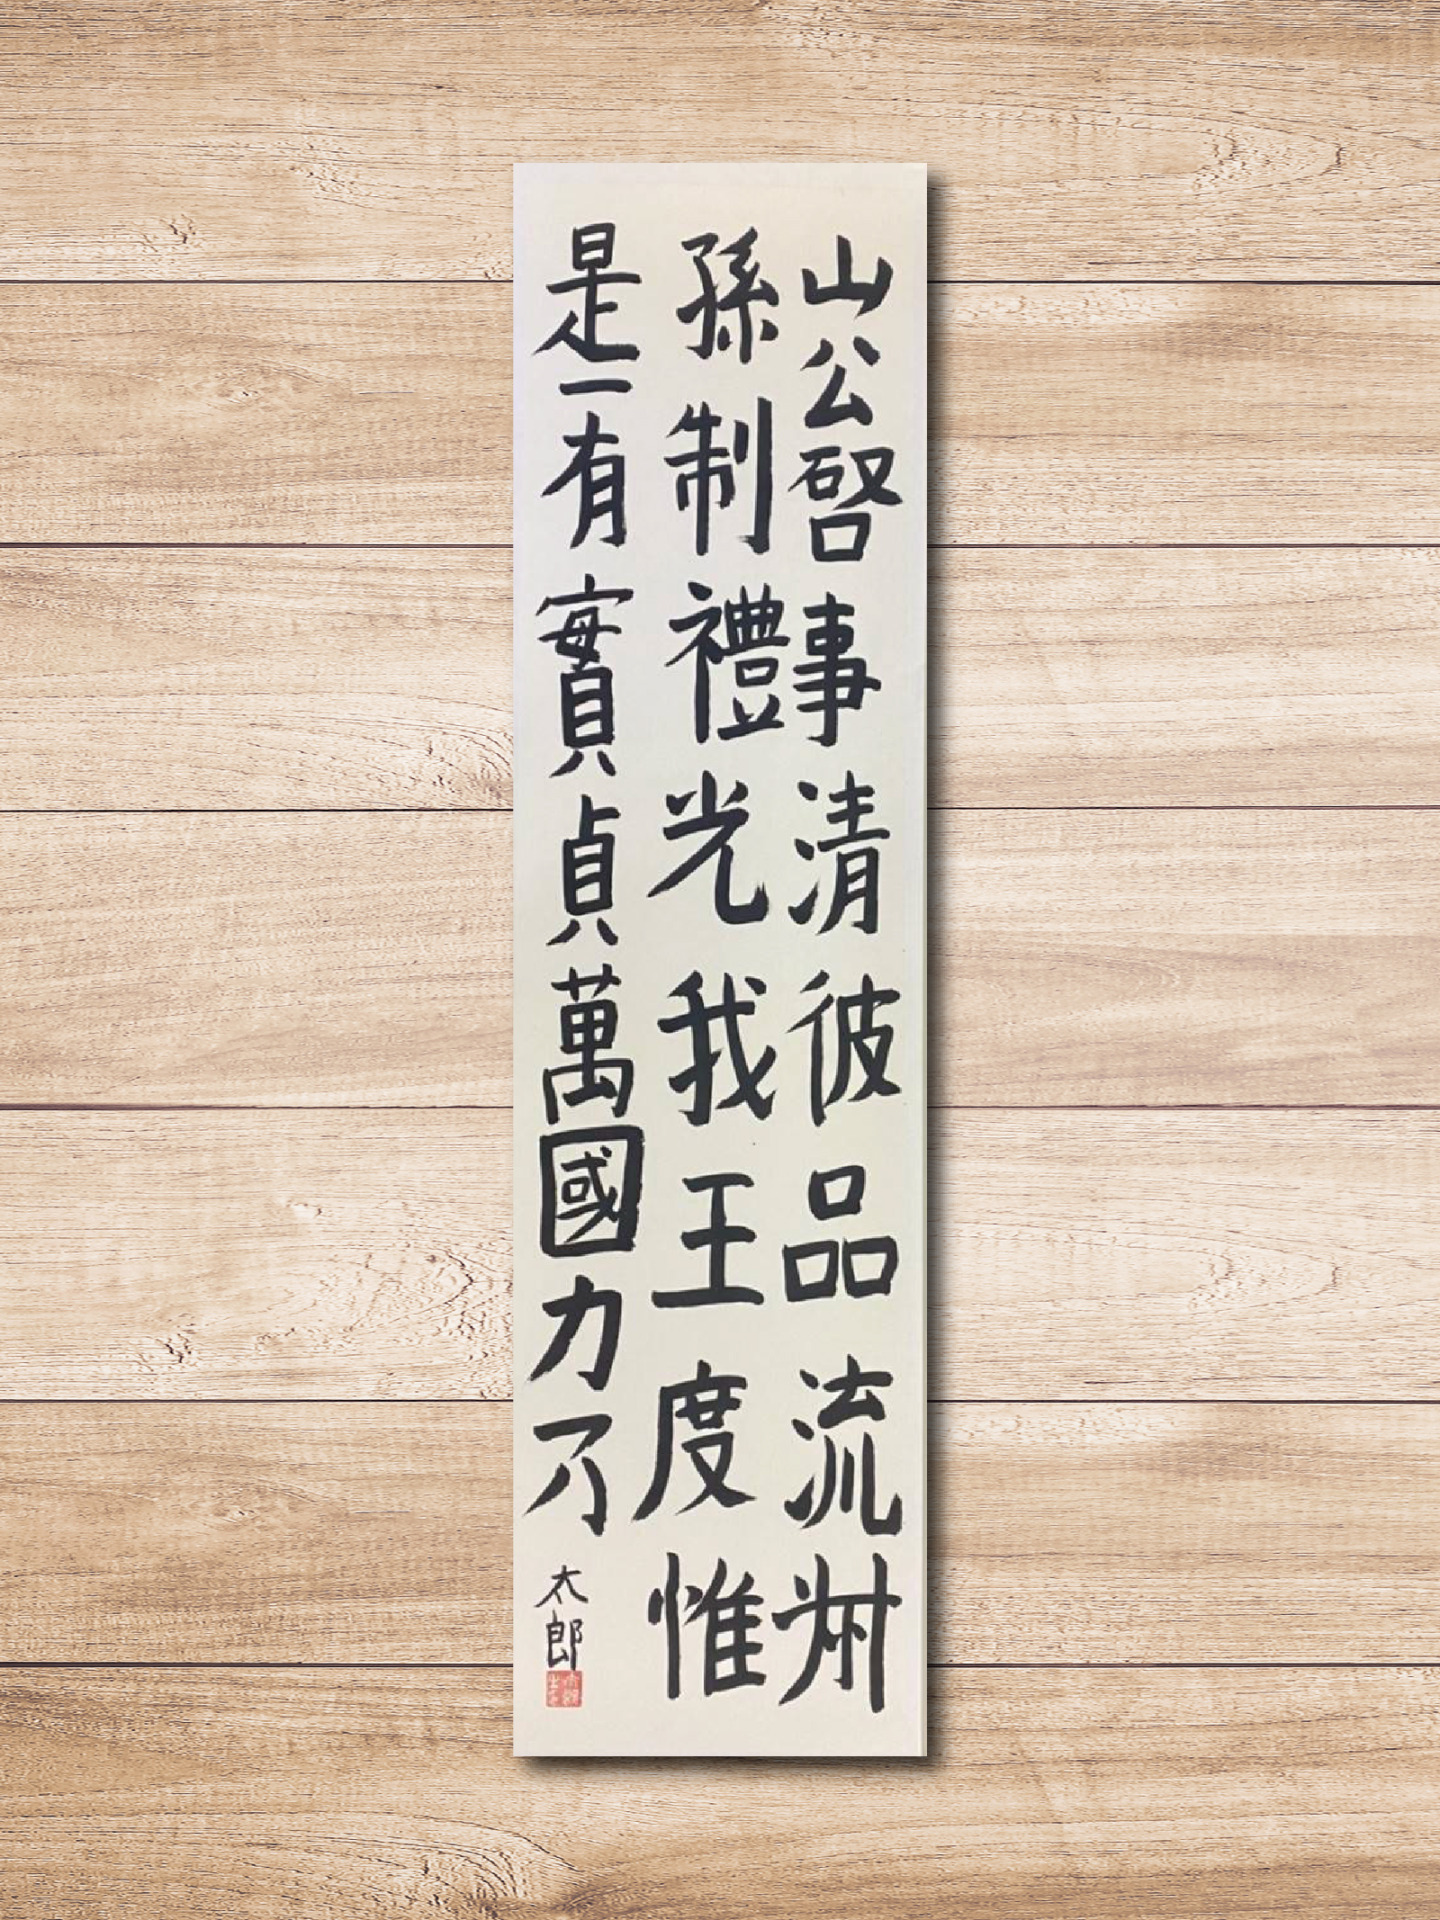 山公啓事清彼品流叔
孫制禮光我王度惟
是一有實貞萬國力乃
太郎